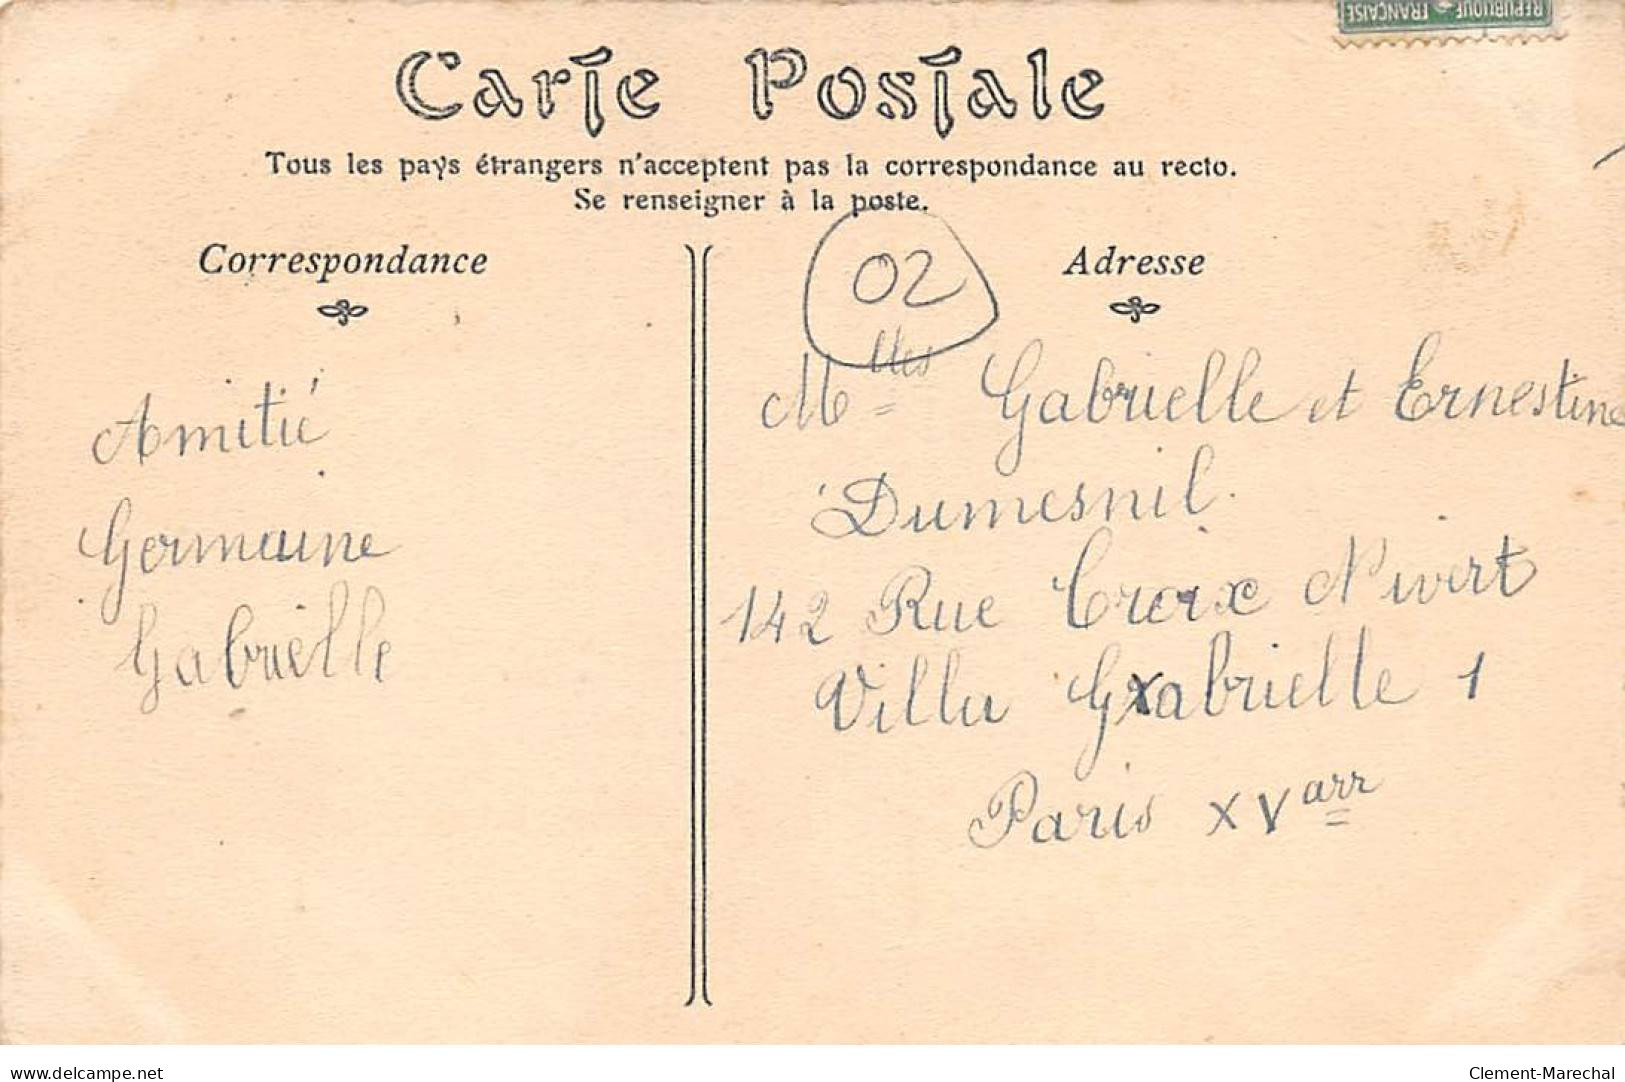 RÉPUBLIQUE FRANÇAISE
Carte Postale
Tous les pays étrangers n'acceptent pas la correspondance au recto.
Se renseigner à la poste.
Correspondance
Adresse
02
Amitié
Germaine
Gabrielle
Mlles Gabrielle et Ernestine
Dumesnil
142 Rue Croix Nivert
Villa Gabrielle 1
Paris XVarr
delcampe.net
Clement-Marechal